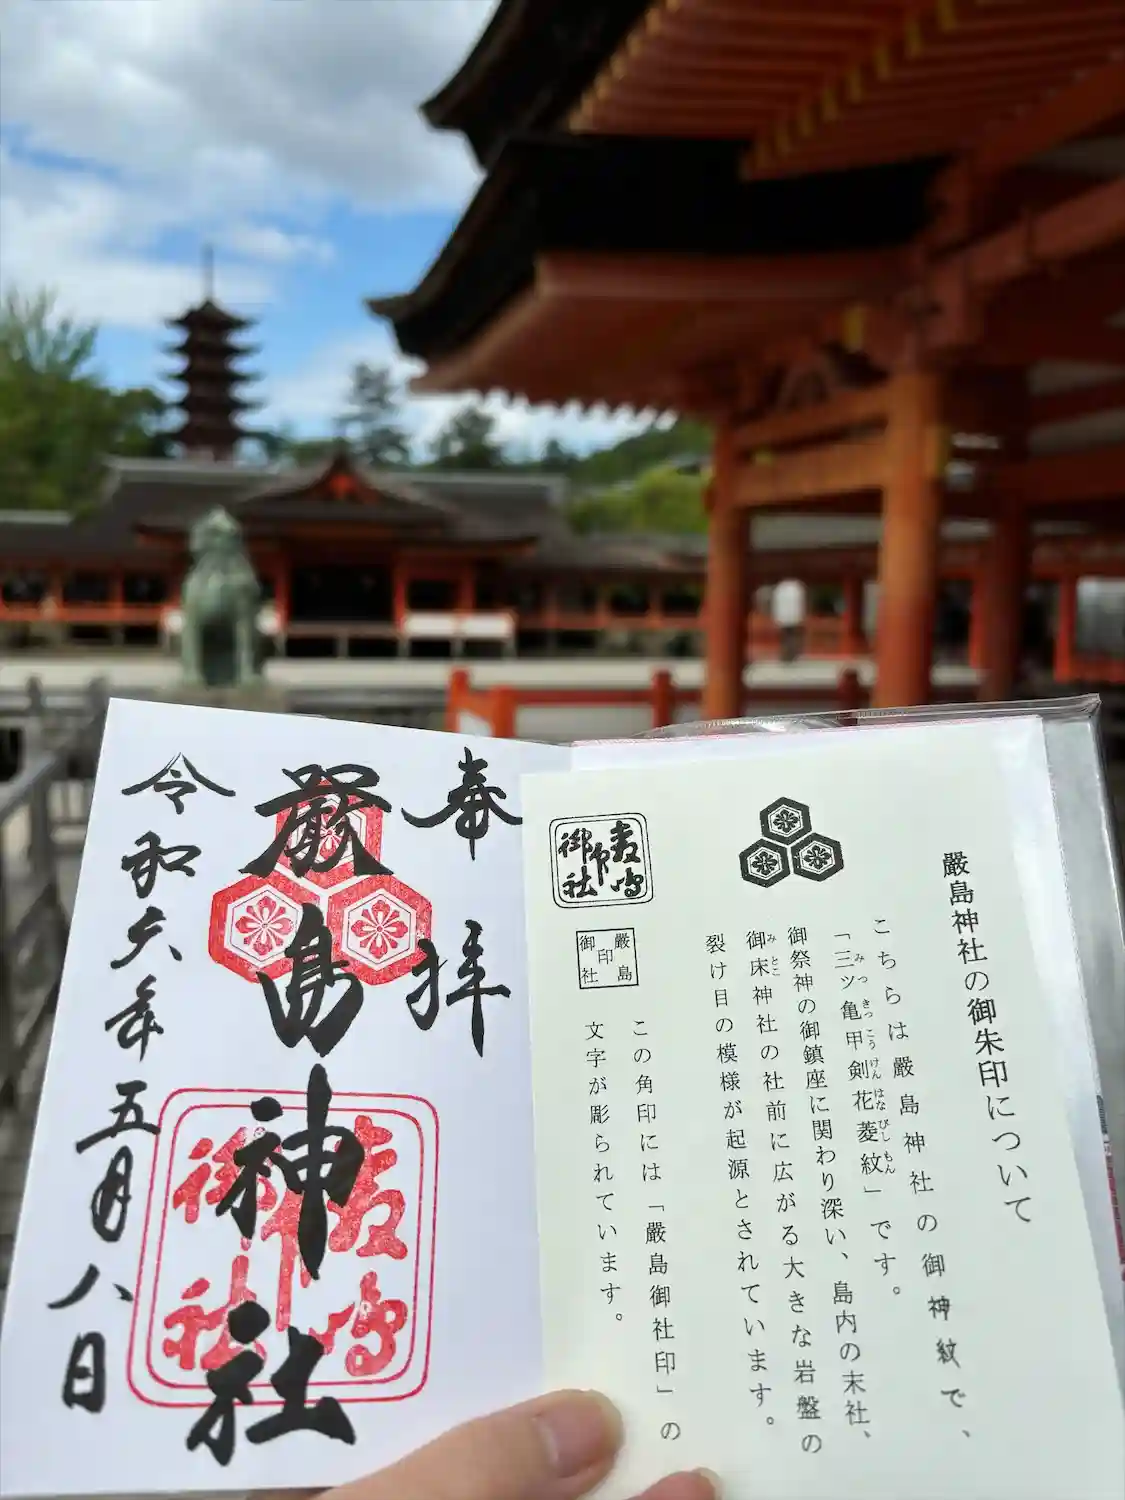 奉拝
嚴島神社
令和六年五月八日
嚴島御社印
嚴島神社の御朱印について
こちらは嚴島神社の御神紋で、
「三ツ亀甲剣花菱紋」です。
みつきっこうけんはなびしもん
御祭神の御鎮座に関わり深い、島内の末社、
御床神社の社前に広がる大きな岩盤の
みとこ
裂け目の模様が起源とされています。
嚴島御社印
嚴島御社印
この角印には「嚴島御社印」の
文字が彫られています。